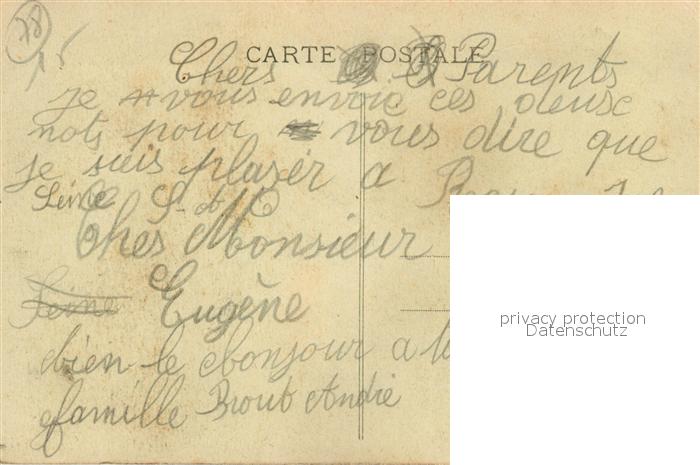 78
15
CARTE POSTALE
Chers Parents
je vous envoie ces deusc
mots pour vous dire que
je suis plasér a
Seine S et M
Chés Monsieur
Seine Eugène
bien le bonjour a
famille Brout André
privacy protection
Datenschutz